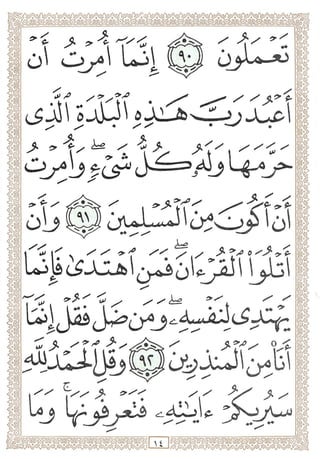 تَعۡمَلُونَ ٩٠ إِنَّمَآ أُمِرۡتُ أَنۡ
أَعۡبُدَ رَبَّ هَٰذِهِ ٱلۡبَلۡدَةِ ٱلَّذِي
حَرَّمَهَا وَلَهُۥ كُلُّ شَيۡءٖۖ وَأُمِرۡتُ
أَنۡ أَكُونَ مِنَ ٱلۡمُسۡلِمِينَ ٩١ وَأَنۡ
أَتۡلُوَاْ ٱلۡقُرۡءَانَۖ فَمَنِ ٱهۡتَدَىٰ فَإِنَّمَا
يَهۡتَدِي لِنَفۡسِهِۦۖ وَمَن ضَلَّ فَقُلۡ إِنَّمَآ
أَنَا۠ مِنَ ٱلۡمُنذِرِينَ ٩٢ وَقُلِ ٱلۡحَمۡدُ لِلَّهِ
سَيُرِيكُمۡ ءَايَٰتِهِۦ فَتَعۡرِفُونَهَاۚ وَمَا
١٤